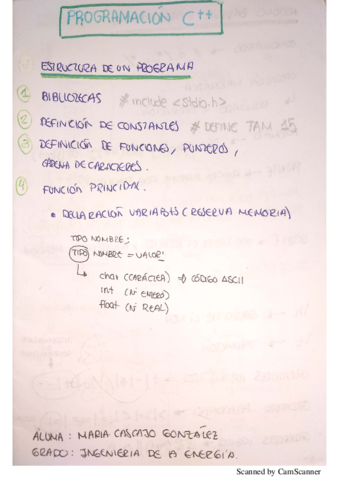 PROGRAMACIÓN C++
ESTRUCTURA DE UN PROGRAMA
1 BIBLIOTECAS # include <stdio.h>
2 DEFINICIÓN DE CONSTANTES # DEFINE TAM 15
3 DEFINICIÓN DE FUNCIONES, PUNTEROS,
CADENA DE CARACTERES.
4 FUNCIÓN PRINCIPAL.
• DECLARACIÓN VARIABLES (RESERVA MEMORIA)
TIPO NOMBRE;
TIPO NOMBRE = VALOR;
↳ char (CARÁCTER) → CÓDIGO ASCII
int (Nº ENTERO)
float (Nº REAL)
ALUNA: MARIA CASCAJO GONZÁLEZ
GRADO: INGENIERIA DE LA ENERGÍA.
Scanned by CamScanner